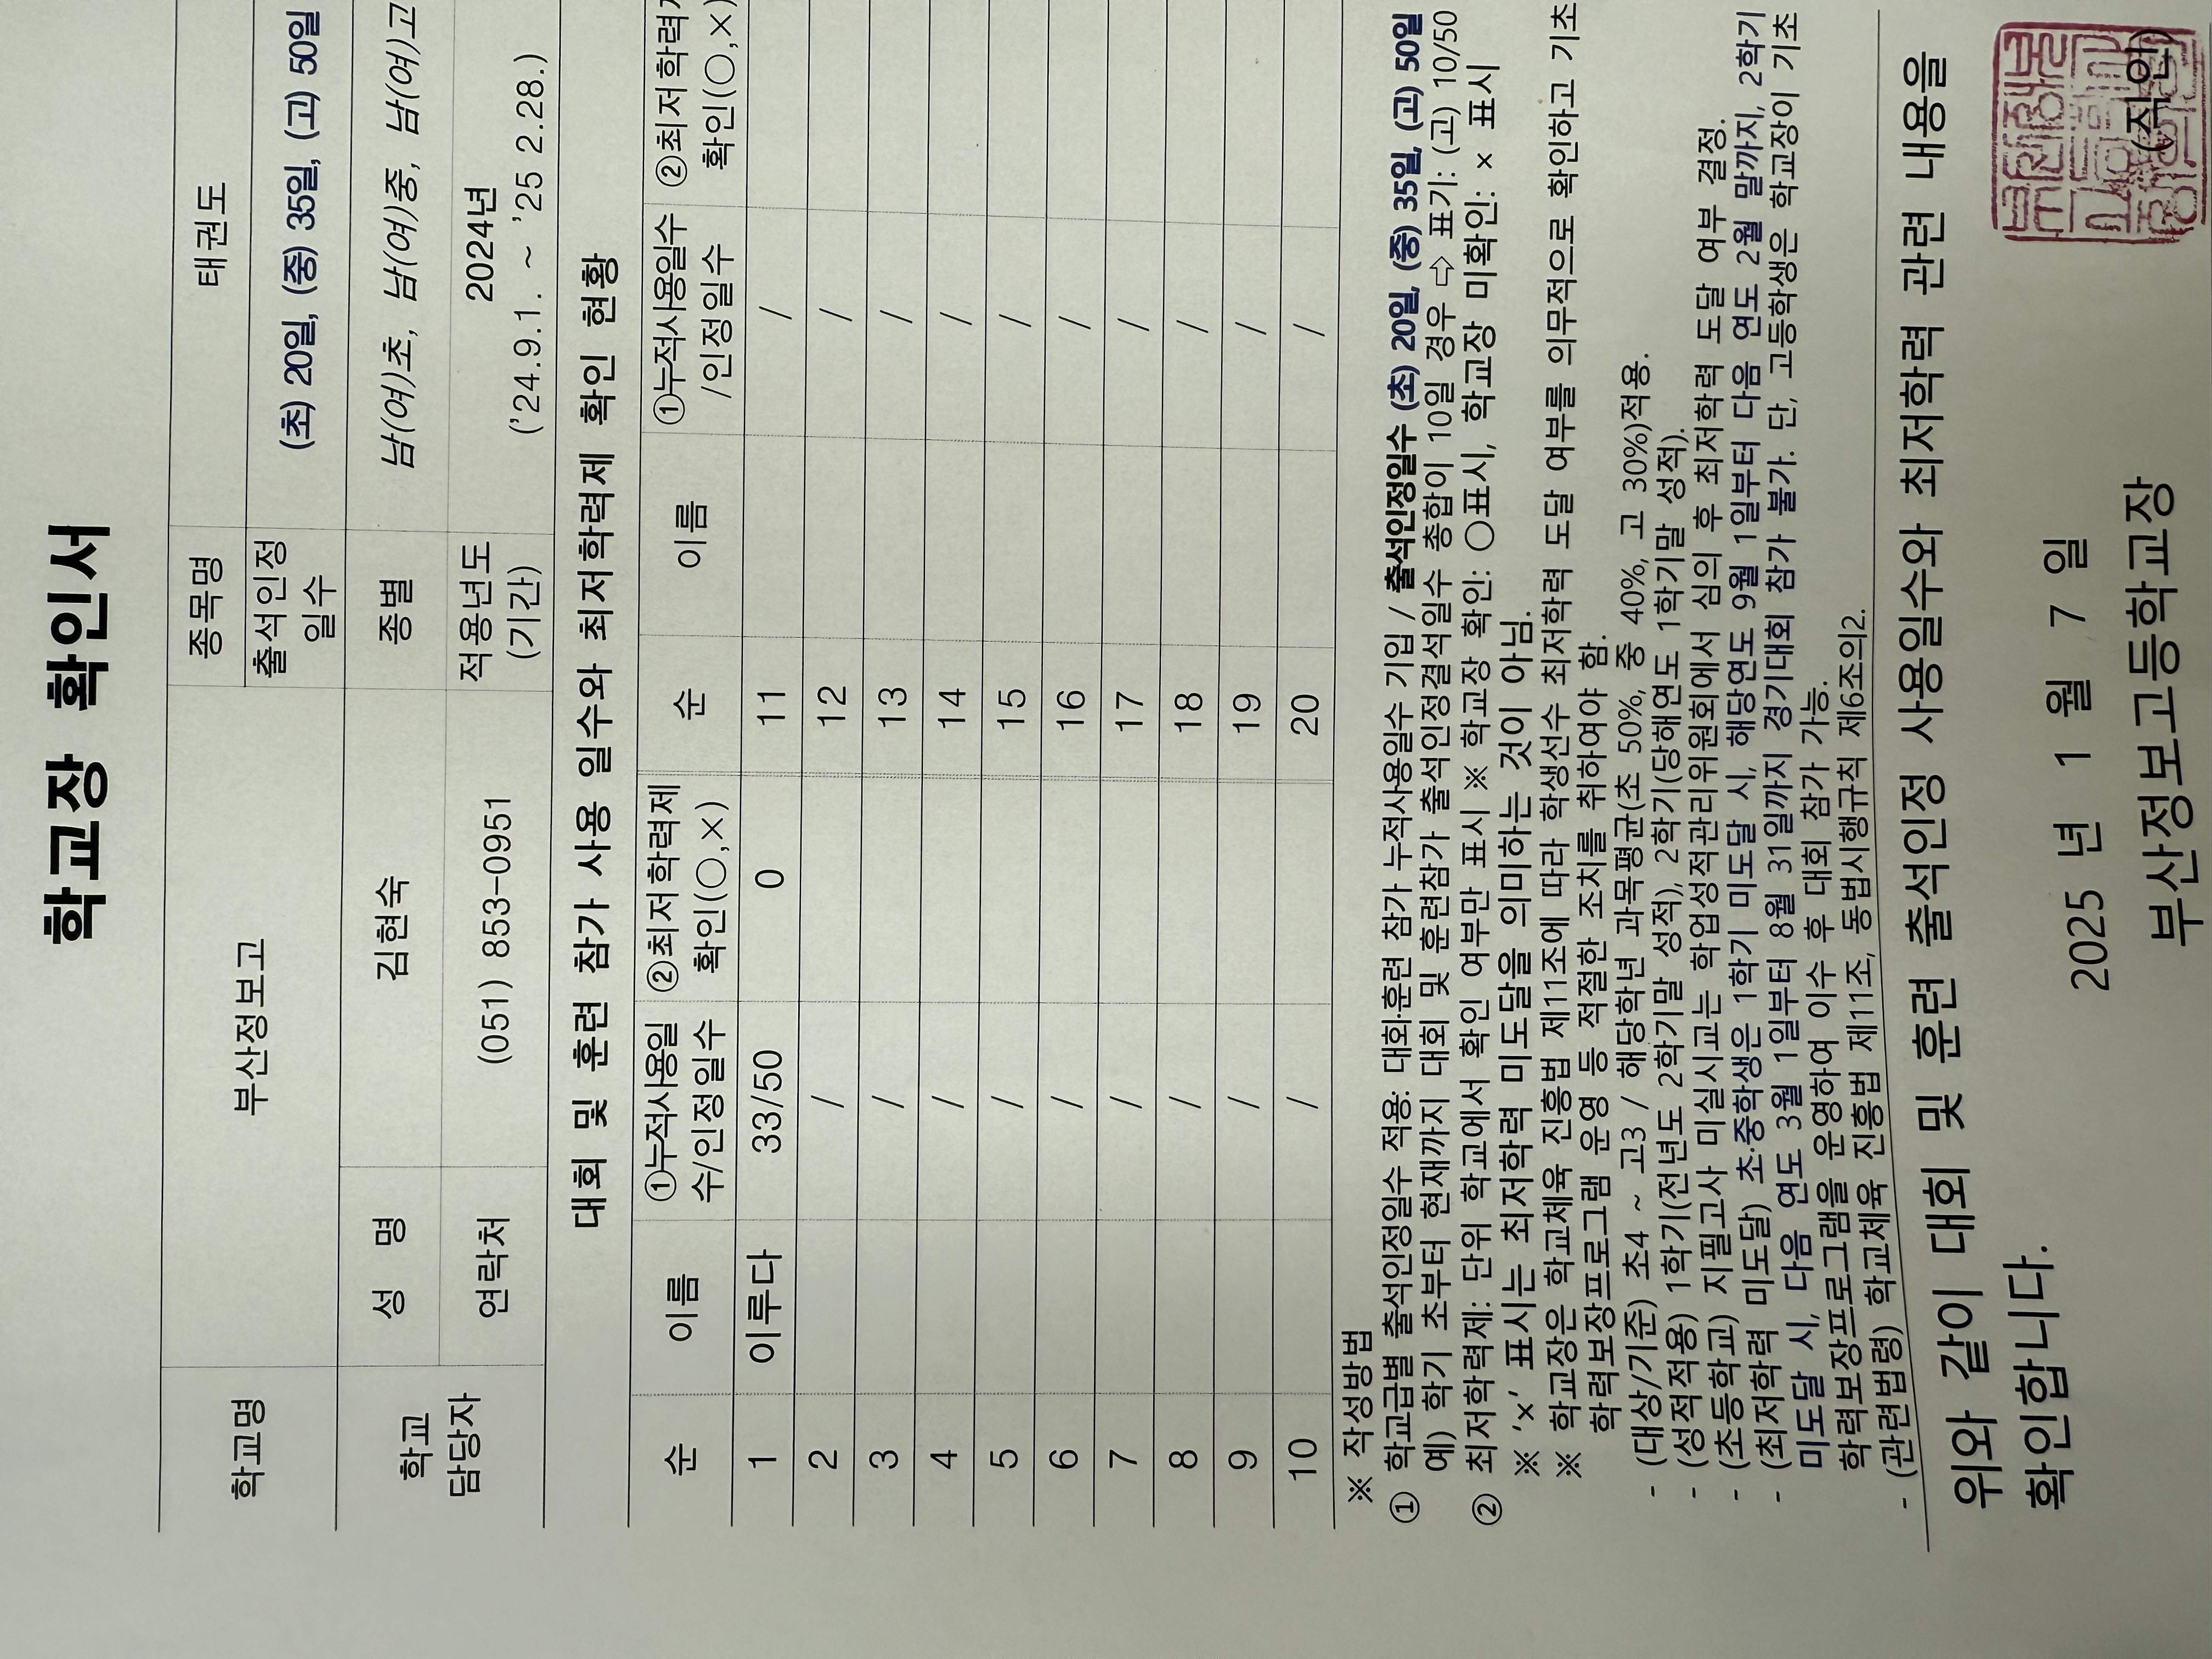 학교장 확인서
학교명 부산정보고 종목명 태권도
출석인정 일수 (초) 20일, (중) 35일, (고) 50일
학교 담당자 성 명 김현숙 종별 남(여)초, 남(여)중, 남(여)고
연락처 (051) 853-0951 적용년도 (기간) 2024년 ('24.9.1. ~ '25 2.28.)
대회 및 훈련 참가 사용 일수와 최저학력제 확인 현황
순 이름 ①누적사용일수/인정일수 ②최저학력제 확인(○,×) 순 이름 ①누적사용일수/인정일수 ②최저학력 확인(○,×)
1 이루다 33/50 0 11 /
2 / 12 /
3 / 13 /
4 / 14 /
5 / 15 /
6 / 16 /
7 / 17 /
8 / 18 /
9 / 19 /
10 / 20 /
※ 작성방법
① 학교급별 출석인정일수 적용: 대회·훈련 참가 누적사용일수 기입 / 출석인정일수 (초) 20일, (중) 35일, (고) 50일
예) 학기 초부터 현재까지 대회 및 훈련참가 출석인정결석일수 총합이 10일 경우 ⇨ 표기: (고) 10/50
② 최저학력제: 단위 학교에서 확인 여부만 표시 ※ 학교장 확인: ○표시, 학교장 미확인: × 표시
※ '×' 표시는 최저학력 미도달을 의미하는 것이 아님.
※ 학교장은 학교체육 진흥법 제11조에 따라 학생선수 최저학력 도달 여부를 의무적으로 확인하고 기초
학력보장프로그램 운영 등 적절한 조치를 취하여야 함.
- (대상/기준) 초4 ~ 고3 / 해당학년 과목평균(초 50%, 중 40%, 고 30%)적용.
- (성적적용) 1학기(전년도 2학기말 성적), 2학기(당해연도 1학기말 성적).
- (초등학교) 지필고사 미실시교는 학업성적관리위원회에서 심의 후 최저학력 도달 여부 결정.
- (최저학력 미도달) 초·중학생은 1학기 미도달 시, 해당연도 9월 1일부터 다음 연도 2월 말까지, 2학기
미도달 시, 다음 연도 3월 1일부터 8월 31일까지 경기대회 참가 불가. 단, 고등학생은 학교장이 기초
학력보장프로그램을 운영하여 이수 후 대회 참가 가능.
- (관련법령) 학교체육 진흥법 제11조, 동법시행규칙 제6조의2.
위와 같이 대회 및 훈련 출석인정 사용일수와 최저학력 관련 내용을
확인합니다.
2025 년 1 월 7 일
부산정보고등학교장 (직인)